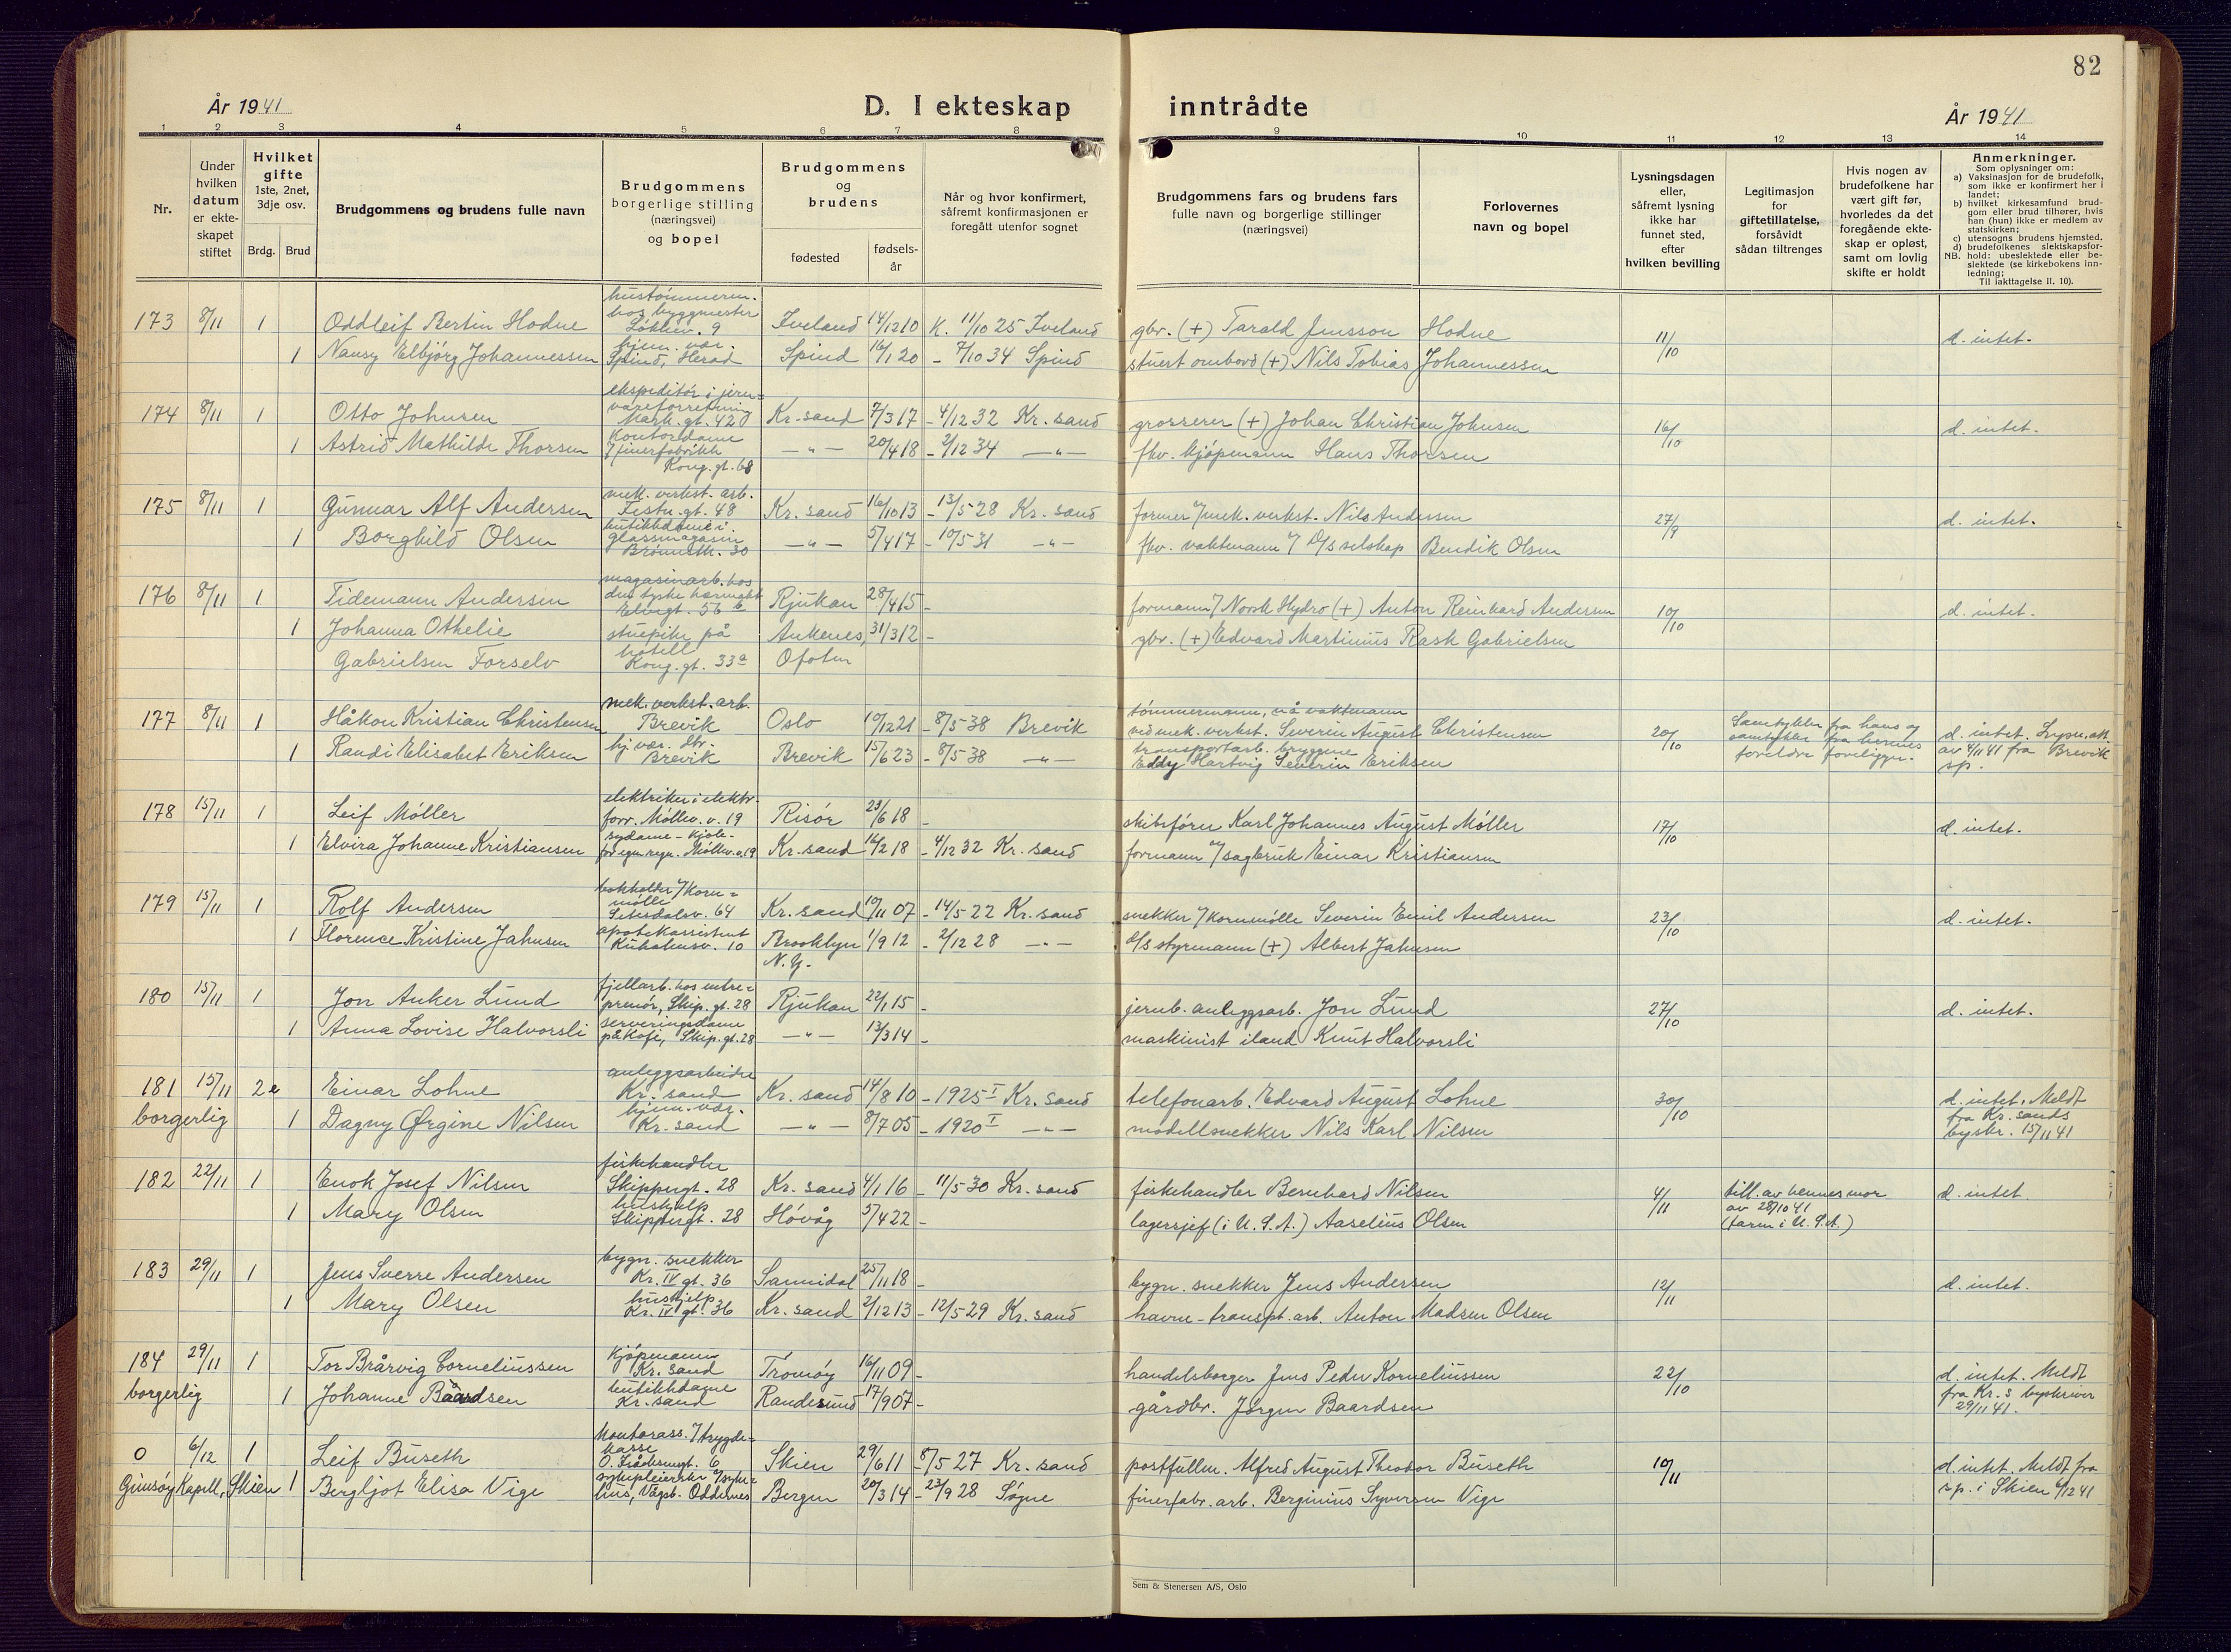 82
År 1941
D. I ekteskap inntrådte
År 1941
1 2 3 4 5 6 7 8 9 10 11 12 13 14
Nr.
Under hvilken datum er ekteskapet stiftet
Hvilket gifte 1ste, 2net, 3dje osv.
Brdg. Brud
Brudgommens og brudens fulle navn
Brudgommens borgerlige stilling (næringsvei) og bopel
Brudgommens og brudens
fødested
fødselsår
Når og hvor konfirmert, såfremt konfirmasjonen er foregått utenfor sognet
Brudgommens fars og brudens fars fulle navn og borgerlige stillinger (næringsvei)
Forlovernes navn og bopel
Lysningsdagen eller, såfremt lysning ikke har funnet sted, efter hvilken bevilling
Legitimasjon for giftetillatelse, forsåvidt sådan tiltrenges
Hvis nogen av brudefolkene har vært gift før, hvorledes da det foregående ekteskap er opløst, samt om lovlig skifte er holdt
Anmerkninger.
Som oplysninger om:
a) Vaksinasjon for de brudefolk, som ikke er konfirmert her i landet;
b) hvilket kirkesamfund brudgom eller brud tilhører, hvis han (hun) ikke er medlem av statskirken;
c) utensogns brudens hjemsted.
d) brudefolkenes slektskapsforhold: ubeslektede eller beslektede (se kirkebokens innledning;
NB.
Til iakttagelse II. 10).
173 8/11 1 Oddleif Bertin Hodne hustømmerm. hos byggmester Løkkev. 9 Iveland 14/12 10 K. 11/10 25 Iveland gbr. (+) Tarald Jensson Hodne 11/10 d. intet.
1 Nansy Elbjørg Johannessen hjem. vær. Spind, Herad Spind 16/1 20 - 7/10 34 Spind stuert ombord (+) Nils Tobias Johannessen
174 8/11 1 Otto Johnsen ekspeditør i jernvareforretning Mark. gt. 42 Kr. sand 7/3 17 - 4/12 32 Kr. sand grosserer (+) Johan Christian Johnsen 16/10 d. intet.
1 Astrid Mathilde Thorsen kontordame v/ finerfabrikk Kong. gt. 68 — " — 20/4 18 - 2/12 34 — " — fhv. kjøpmann Hans Thorsen
175 8/11 1 Gunnar Alf Andersen mek. verkst. arb. Festn. gt. 48 Kr. sand 16/10 13 - 13/5 28 Kr. sand former v/ mek. verkst. Nils Andersen 27/9 d. intet.
1 Borghild Olsen butikkdame i glassmagasin 30 — " — 5/4 17 - 10/5 31 — " — fhv. vaktmann v/ D/S selskap Bendik Olsen
176 8/11 1 Tidemann Andersen magasinarb. hos den tyske Elvegt. 56 b Rjukan 28/4 15 - formann v/ Norsk Hydro (+) Anton Reinhard Andersen 10/10 d. intet.
1 Johanna Othelie stuepike på Ankenes, 31/3 12 - gbr. (+) Edvard Martinius Rask Gabrielsen
Gabrielsen Forselv hotell Kong. gt. 33a Ofoten
177 8/11 1 Håkon Kristian Christensen mek. verkst. arb. Brevik Oslo 10/12 21 - 8/5 38 Brevik tømmermann, nå vaktmann ved mek. verkst. Severin August Christensen 20/10 Samtykke fra hans og samtykke fra hennes foreldre foreligger. d. intet. Lysn. att. av 4/11 41 fra Brevik sp.
1 Randi Elisabet Eriksen hj. vær. dtr. Brevik Brevik 15/6 23 - 8/5 38 — " — transportarb. bryggene Eddy Hartvig Severin Eriksen
178 15/11 1 Leif Møller elektriker i elektr. forr. Møllev. v. 19 Risør 23/6 18 - skibsfører Karl Johannes August Møller 17/10 d. intet.
1 Elvira Johanne Kristiansen sydame - kjole - for egen regn. Møllev. v. 19 Kr. sand 16/2 18 - 4/12 32 Kr. sand formann v/ sagbruk Einar Kristiansen
179 15/11 1 Rolf Andersen bokholder v/ Kornmølle Setesdalsv. 64 Kr. sand 19/11 07 - 14/5 22 Kr. sand snekker v/ kornmølle Severin Emil Andersen 23/10 d. intet.
1 Florence Kristine Jahnsen apotekassistent Kuholmsv. 10 Brooklyn N.Y. 1/9 12 - 2/12 28 — " — D/S styrmann (+) Albert Jahnsen
180 15/11 1 Jon Anker Lund fjellarb. hos entreprenør, Skip. gt. 28 Rjukan 22/1 15 - jernb. anleggsarb. Jon Lund 27/10 d. intet.
1 Anna Lovise Halvorsli serveringsdame på Kafe, Skip. gt. 28 — " — 13/3 14 - maskinist iland Knut Halvorsli
181 15/11 2e Einar Lohne anleggsarbeider Kr. sand Kr. sand 14/8 10 - 1925 I Kr. sand telefonarb. Edvard August Lohne 30/10 d. intet. Meldt fra Kr. sands byskr. 15/11 41
borgerlig 1 Dagny Ørgine Nilsen hjem. vær. Kr. sand — " — 8/7 05 - 1920 I — " — modellsnekker Nils Karl Nilsen
182 22/11 1 Enok Josef Nilsen fiskehandler Skippergt. 28 Kr. sand 4/1 16 - 11/5 30 Kr. sand fiskehandler Bernhard Nilsen 4/11 till. av hennes mor av 28/10 41 (faren i U.S.A.) d. intet
1 Mary Olsen hushjelp Skippergt. 28 Høvåg 5/4 22 - lagersjef (i U.S.A.) Aaselius Olsen
183 29/11 1 Jens Sverre Andersen bygn. snekker Kr. IV gt. 36 Sannidal 25/11 18 - bygn. snekker Jens Andersen 12/11 d. intet.
1 Mary Olsen hushjelp Kr. IV gt. 36 Kr. sand 2/12 13 - 12/5 29 Kr. sand havne-transpt. arb. Anton Madsen Olsen
184 29/11 1 Tor Brårvig Corneliussen kjøpmann Kr. sand Tromøy 16/11 09 - handelsborger Jens Peder Korneliussen 22/10 d. intet. Meldt fra Kr.s byskriver 29/11 41.
borgerlig 1 Johanne Baardsen butikkdame Kr. sand Randesund 17/9 07 - gårdbr. Jørgen Baardsen
0 6/12 1 Leif Buseth kontorass. v/ trygdekasse 6 Skien 29/6 11 - 8/5 27 Kr. sand postfullm. Alfred August Theodor Buseth 10/11 d. intet. Meldt fra sp. i Skien 6/12 41
Gimsøy Kapell, Skien 1 Bergljot Elisa Vige sykepleierske v/ sykehus, Vågsb. Oddernes Bergen 20/3 14 - 23/9 28 Søgne finerfabr. arb. Berginius Syversen Vige
Sem & Stenersen A/S, Oslo